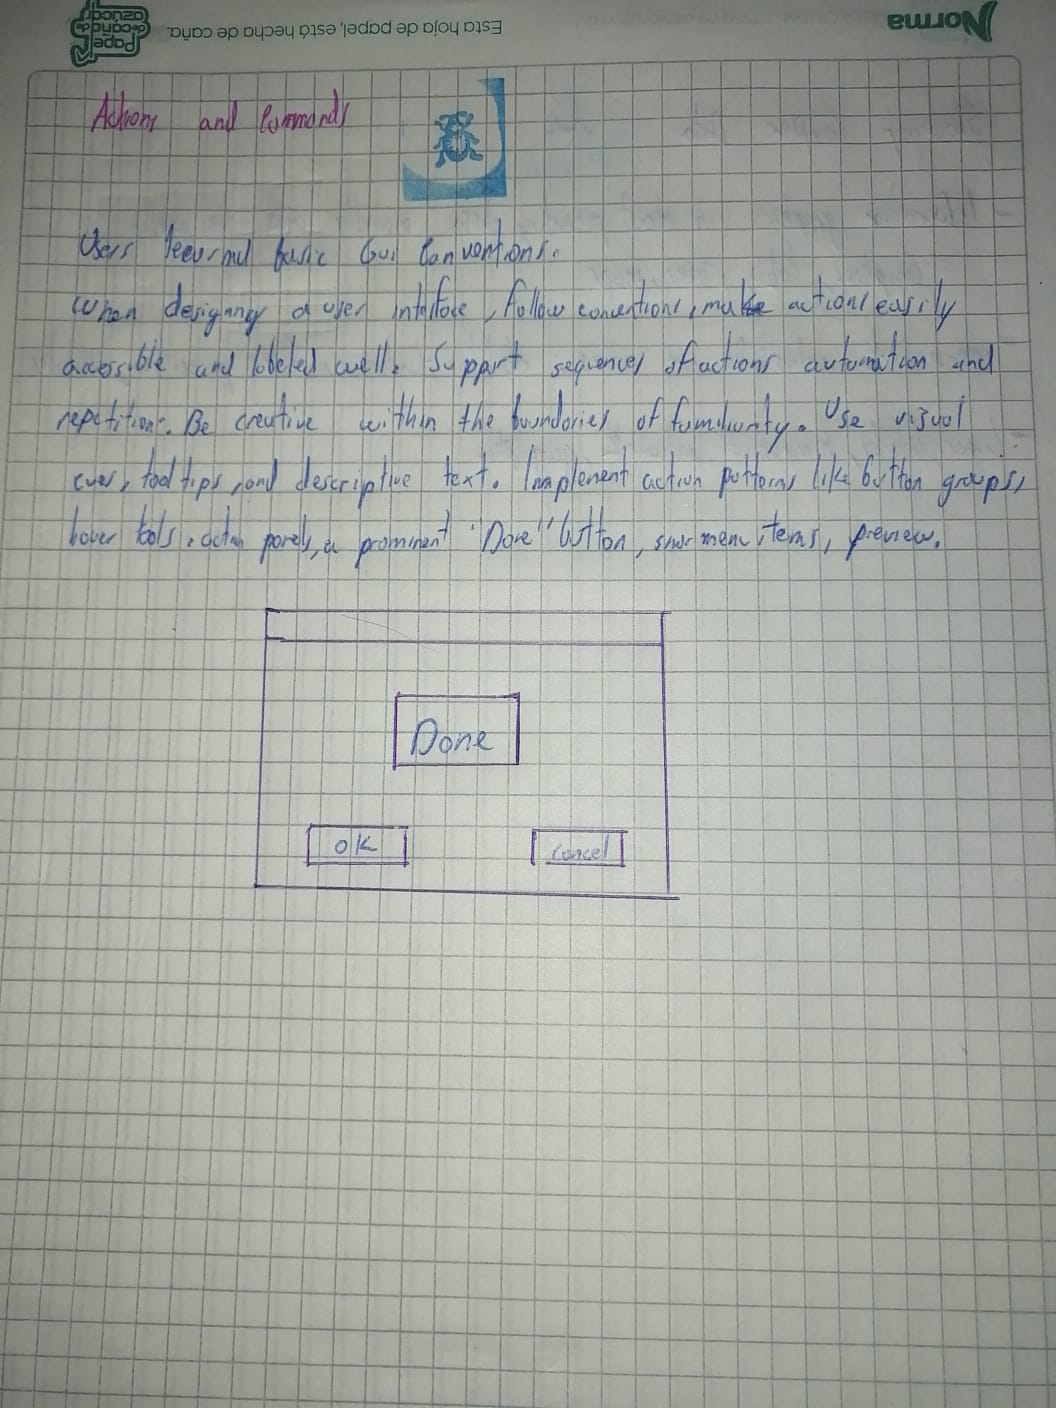 Norma
Esta hoja de papel, está hecha de caña.
Papel de caña de azúcar
Actions and Commands
Users basic Gui Conventions.
When designing a user interface, follow conventions, make actions easily
accessible and labeled well. Support sequences of actions automation and
repetition. Be creative within the boundaries of Use visual
cues, tool tips, and descriptive text. Implement action patterns like button groups,
hover tools, action panels, a prominent "Done" button, smar menu items, preview.
Done
OK
Cancel